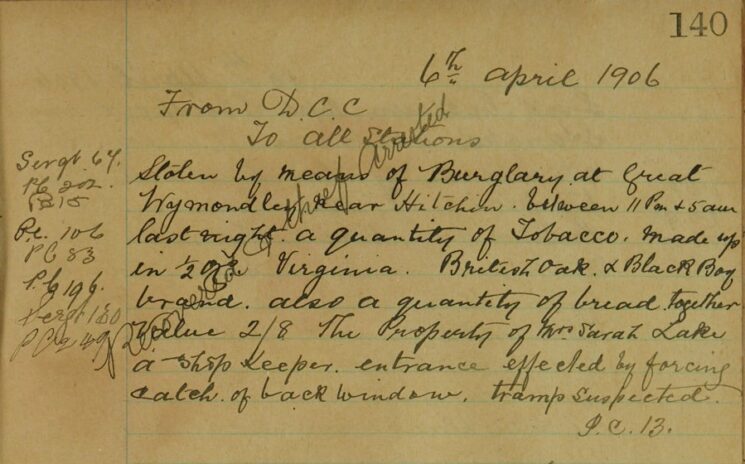 140
6th april 1906
From D.C.C
To all Stations
Sergt 64.
PC 202.
PC 15
Pc. 106
PC 83
P.C 196.
Sergt 180
PC 249
Stolen by means of Burglary at Great
Wymondley near Hitchin. between 11 Pm & 5 am
last night. a quantity of Tobacco. made up
in 1/2 ozs Virginia. British Oak. & Black Boy
brand. also a quantity of bread. together
value 2/8 The Property of Mrs Sarah Lake
a Shop Keeper. entrance effected by forcing
catch of back window. tramp suspected.
P.C. 13.
Recovered & thief arrested